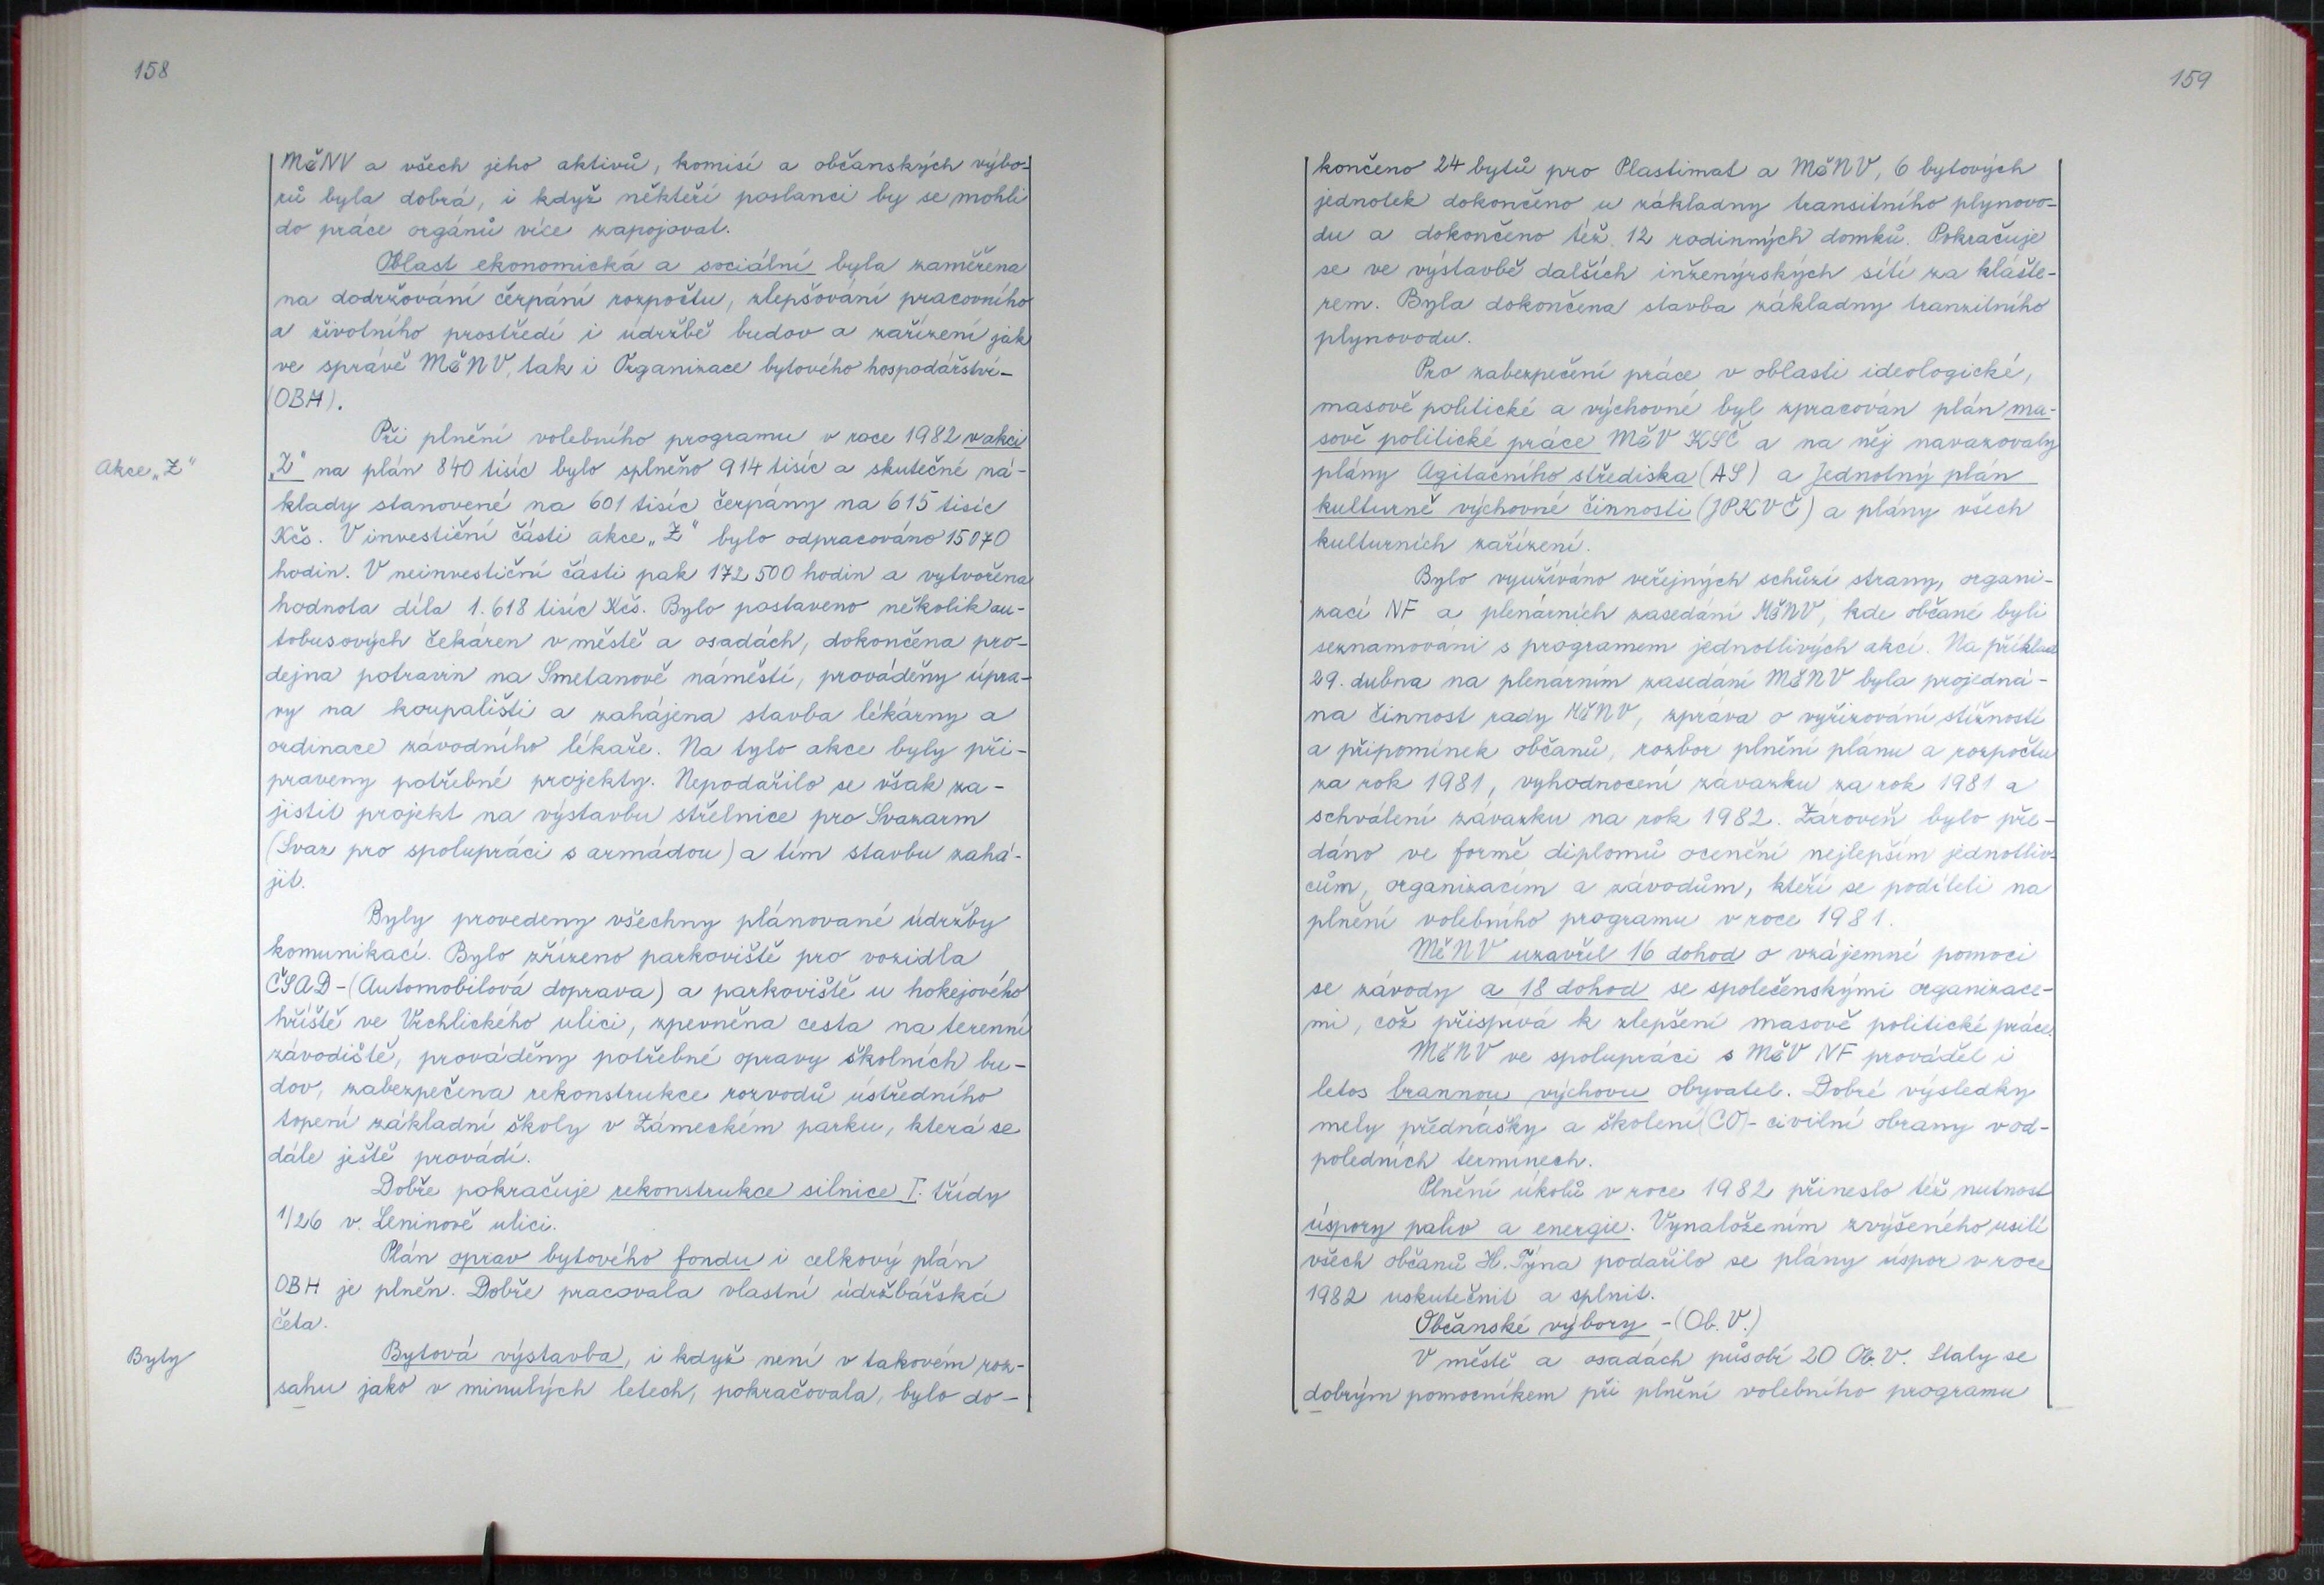 158
MěNV a všech jeho aktivů, komisí a občanských výbo-
rů byla dobrá, i když někteří poslanci by se mohli
do práce orgánů více zapojovat.
Oblast ekonomická a sociální byla zaměřena
na dodržování čerpání rozpočtu, zlepšování pracovního
a životního prostředí i údržbě budov a zařízení jak
ve správě MěNV, tak i Organizace bytového hospodářství-
(OBH).
Při plnění volebního programu v roce 1982 v akci
Akce „Z"
„Z" na plán 840 tisíc bylo splněno 914 tisíc a skutečné ná-
klady stanovené na 601 tisíc čerpány na 615 tisíc
Kčs. V investiční části akce „Z" bylo odpracováno 15070
hodin. V neinvestiční části pak 172 500 hodin a vytvořena
hodnota díla 1.618 tisíc Kčs. Bylo postaveno několik au-
tobusových čekáren v městě a osadách, dokončena pro-
dejna potravin na Smetanově náměstí, prováděny úpra-
vy na koupališti a zahájena stavba lékárny a
ordinace závodního lékaře. Na tyto akce byly při-
praveny potřebné projekty. Nepodařilo se však za-
jistit projekt na výstavbu střelnice pro Svazarm
(Svaz pro spolupráci s armádou) a tím stavbu zahá-
jit.
Byly provedeny všechny plánované údržby
komunikací. Bylo zřízeno parkoviště pro vozidla
ČSAD-(Automobilová doprava) a parkoviště u hokejového
hřiště ve Vrchlického ulici, zpevněna cesta na terenní
závodiště, prováděny potřebné opravy školních bu-
dov, zabezpečena rekonstrukce rozvodů ústředního
topení základní školy v Zámeckém parku, která se
dále ještě provádí.
Dobře pokračuje rekonstrukce silnice I. třídy
1/26 v. Leninově ulici.
Plán oprav bytového fondu i celkový plán
OBH je plněn. Dobře pracovala vlastní údržbářská
četa.
Byty
Bytová výstavba, i když není v takovém roz-
sahu jako v minulých letech, pokračovala, bylo do-
159
končeno 24 bytů pro Plastimat a MěNV, 6 bytových
jednotek dokončeno u základny transitního plynovo-
du a dokončeno též 12 rodinných domků. Pokračuje
se ve výstavbě dalších inženýrských sítí za klášte-
rem. Byla dokončena stavba základny tranzitního
plynovodu.
Pro zabezpečení práce v oblasti ideologické,
masově politické a výchovné byl zpracován plán ma-
sově politické práce MěV KSČ a na něj navazovaly
plány Agitačního střediska (AS) a Jednotný plán
kulturně výchovné činnosti (JPKVČ) a plány všech
kulturních zařízení.
Bylo využíváno veřejných schůzí strany, organi-
zací NF a plenárních zasedání MěNV, kde občané byli
seznamováni s programem jednotlivých akcí. Na příklad
29. dubna na plenárním zasedání MěNV byla projedná-
na činnost rady MěNV, zpráva o vyřizování stížností
a připomínek občanů, rozbor plnění plánu a rozpočtu
za rok 1981, vyhodnocení závazku za rok 1981 a
schválení závazku na rok 1982. Zároveň bylo pře-
dáno ve formě diplomů ocenění nejlepším jednotliv-
cům, organizacím a závodům, kteří se podíleli na
plnění volebního programu v roce 1981.
MěNV uzavřel 16 dohod o vzájemné pomoci
se závody a 18 dohod se společenskými organizace-
mi, což přispívá k zlepšení masově politické práce.
MěNV ve spolupráci s MěV NF prováděl i
letos brannou výchovu obyvatel. Dobré výsledky
mely přednášky a školení (CO)- civilní obrany v od-
poledních termínech.
Plnění úkolů v roce 1982 přineslo též nutnost
úspory paliv a energie. Vynaložením zvýšeného usilí
všech občanů H. Týna podařilo se plány úspor v roce
1982 uskutečnit a splnit.
Občanské výbory -(Ob. V.)
V městě a osadách působí 20 Ob. V. Staly se
dobrým pomocníkem při plnění volebního programu